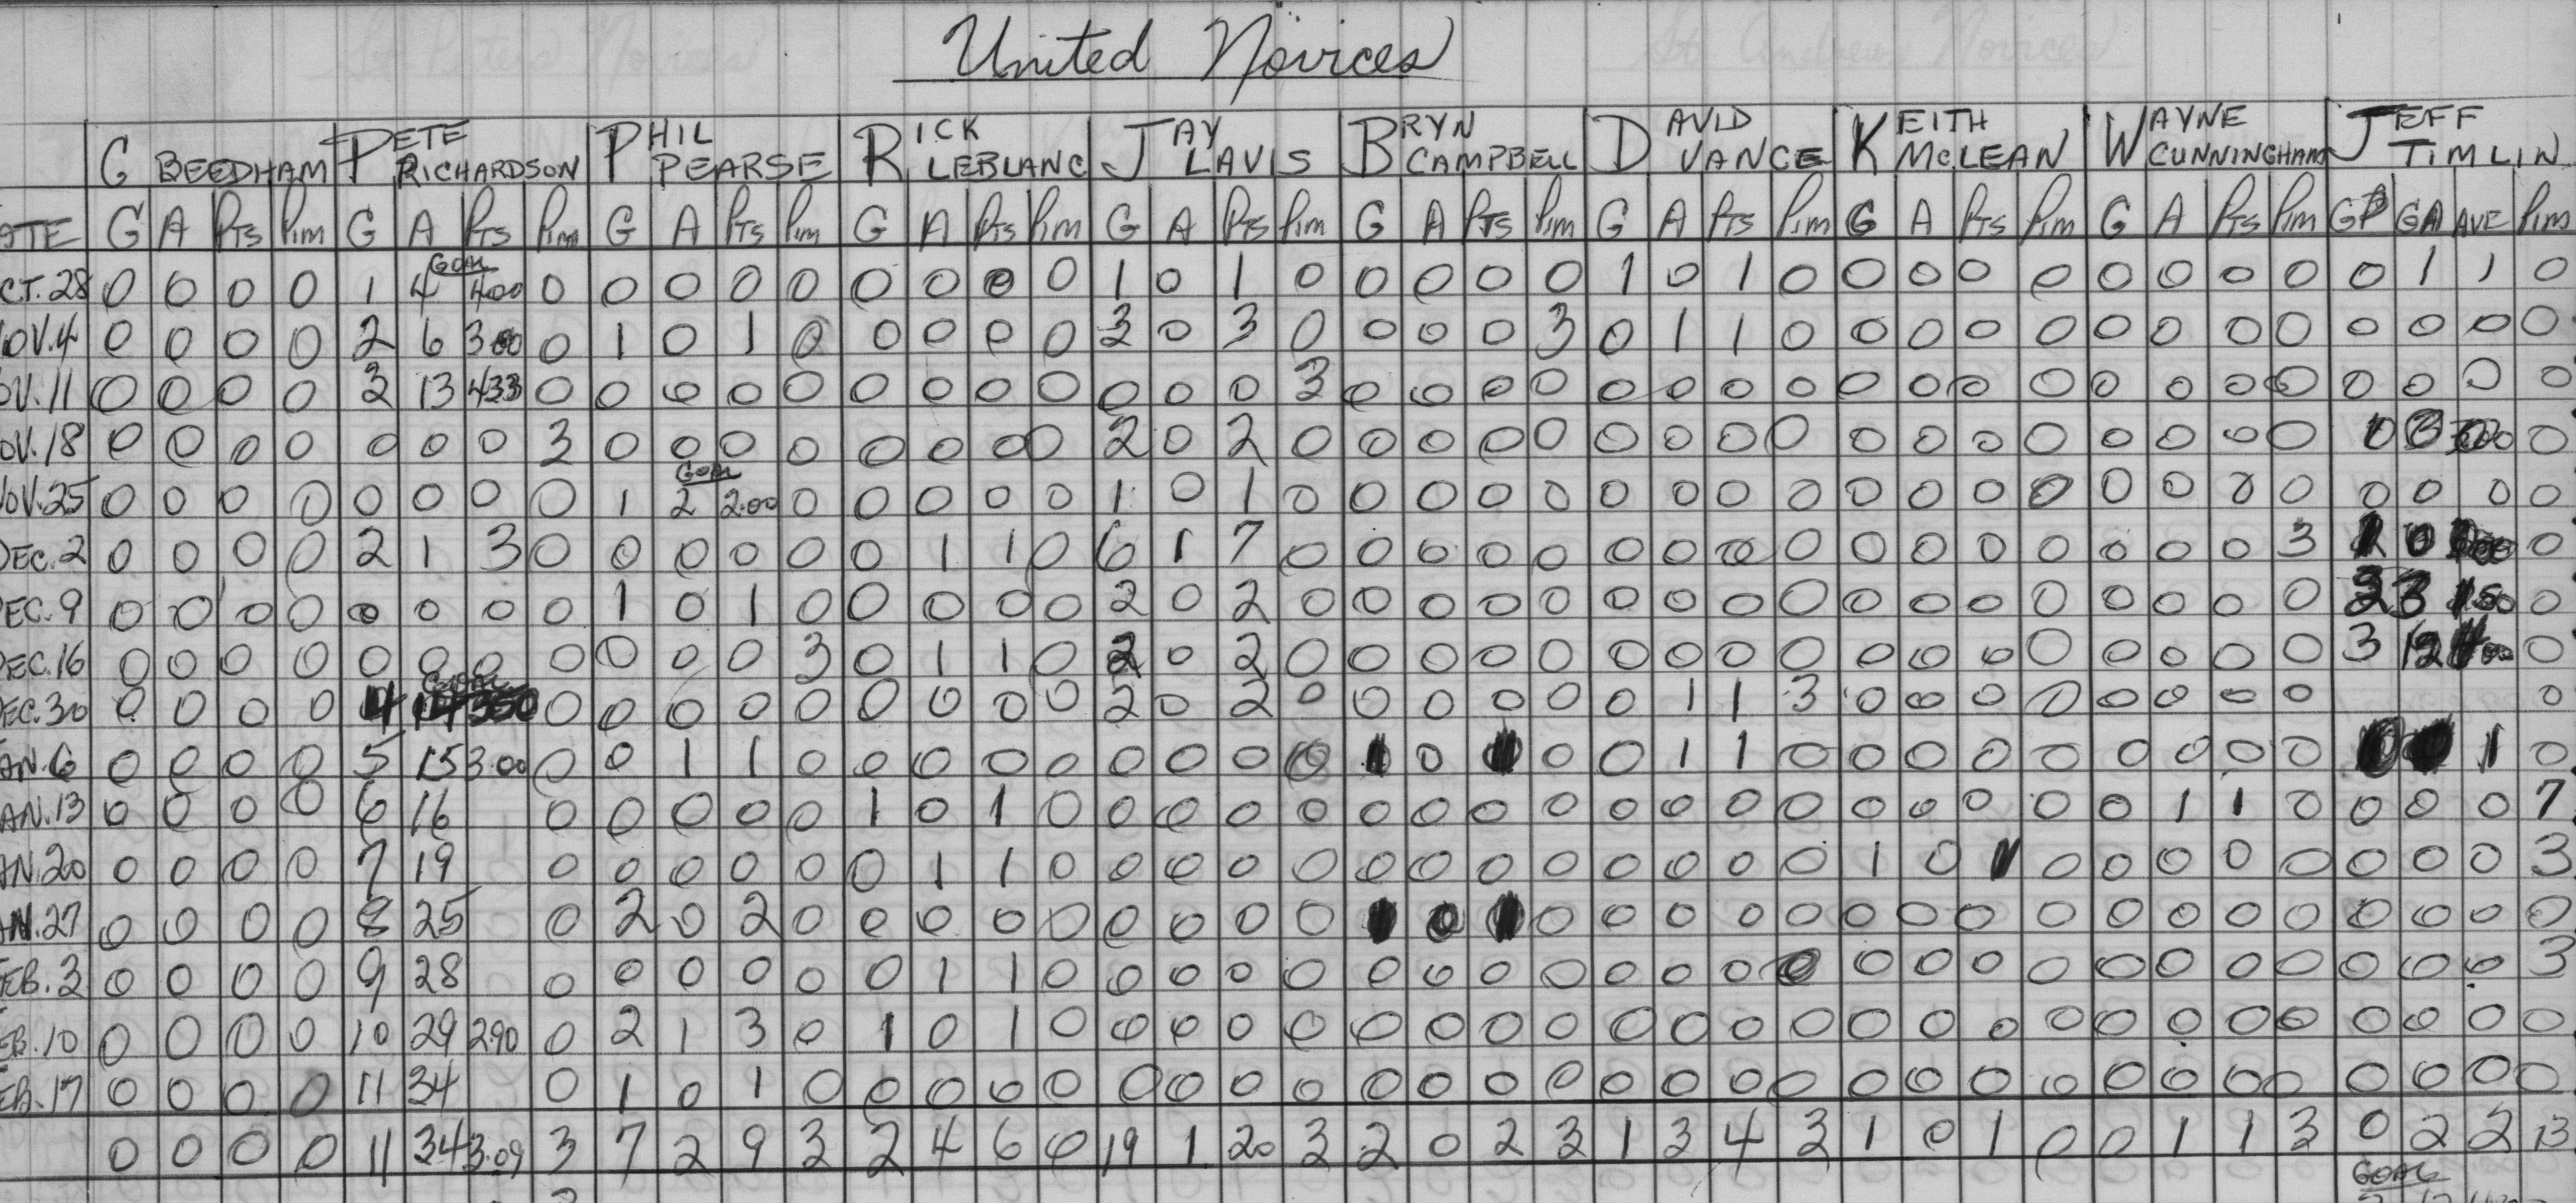 United Novices
G BEEDHAM PETE RICHARDSON PHIL PEARSE RICK LEBLANC JAY LAVIS BRYN CAMPBELL DAVID VANCE KEITH MCLEAN WAYNE CUNNINGHAM JEFF TIMLIN
ATE G A Pts Pim G A Pts Pim G A Pts Pim G A Pts Pim G A Pts Pim G A Pts Pim G A Pts Pim G A Pts Pim G A Pts Pim GP GA AVE Pim
Goal
CT. 28 0 0 0 0 1 4 4.00 0 0 0 0 0 0 0 0 0 1 0 1 0 0 0 0 0 1 0 1 0 0 0 0 0 0 0 0 0 0 1 1 0
OV. 4 0 0 0 0 2 6 3.00 0 1 0 1 0 0 0 0 0 3 0 3 0 0 0 0 3 0 1 1 0 0 0 0 0 0 0 0 0 0 0 0 0
OV. 11 0 0 0 0 3 13 4.33 0 0 0 0 0 0 0 0 0 0 0 0 3 0 0 0 0 0 0 0 0 0 0 0 0 0 0 0 0 0 0 0 0
OV. 18 0 0 0 0 0 0 0 3 0 0 0 0 0 0 0 0 2 0 2 0 0 0 0 0 0 0 0 0 0 0 0 0 0 0 0 0 0
Goal
NOV. 25 0 0 0 0 0 0 0 0 1 2 2.00 0 0 0 0 0 1 0 1 0 0 0 0 0 0 0 0 0 0 0 0 0 0 0 0 0 0 0 0 0
DEC. 2 0 0 0 0 2 1 3 0 0 0 0 0 0 1 1 0 6 1 7 0 0 0 0 0 0 0 0 0 0 0 0 0 0 0 0 3 0 0
DEC. 9 0 0 0 0 0 0 0 0 1 0 1 0 0 0 0 0 2 0 2 0 0 0 0 0 0 0 0 0 0 0 0 0 0 0 0 0 3 0
DEC. 16 0 0 0 0 0 0 0 0 0 0 0 3 0 1 1 0 2 0 2 0 0 0 0 0 0 0 0 0 0 0 0 0 0 0 0 0 3 12 0
Goal
EC. 30 0 0 0 0 4 14 3.50 0 0 0 0 0 0 0 0 0 2 0 2 0 0 0 0 0 0 1 1 3 0 0 0 0 0 0 0 0 0
AN. 6 0 0 0 0 5 15 3.00 0 0 1 1 0 0 0 0 0 0 0 0 0 1 0 1 0 0 1 1 0 0 0 0 0 0 0 0 0 1 0
AN. 13 0 0 0 0 6 16 0 0 0 0 0 1 0 1 0 0 0 0 0 0 0 0 0 0 0 0 0 0 0 0 0 0 1 1 0 0 0 0 7
AN. 20 0 0 0 0 7 19 0 0 0 0 0 0 1 1 0 0 0 0 0 0 0 0 0 0 0 0 0 1 0 1 0 0 0 0 0 0 0 0 3
AN. 27 0 0 0 0 8 25 0 2 0 2 0 0 0 0 0 0 0 0 0 1 0 1 0 0 0 0 0 0 0 0 0 0 0 0 0 0 0 0 0
FEB. 3 0 0 0 0 9 28 0 0 0 0 0 0 1 1 0 0 0 0 0 0 0 0 0 0 0 0 0 0 0 0 0 0 0 0 0 0 0 0 3
EB. 10 0 0 0 0 10 29 2.90 0 2 1 3 0 1 0 1 0 0 0 0 0 0 0 0 0 0 0 0 0 0 0 0 0 0 0 0 0 0 0 0 0
EB. 17 0 0 0 0 11 34 0 1 0 1 0 0 0 0 0 0 0 0 0 0 0 0 0 0 0 0 0 0 0 0 0 0 0 0 0 0 0 0 0
0 0 0 0 11 34 3.09 3 7 2 9 3 2 4 6 0 19 1 20 3 2 0 2 3 1 3 4 3 1 0 1 0 0 1 1 3 0 2 2 13
GOAL